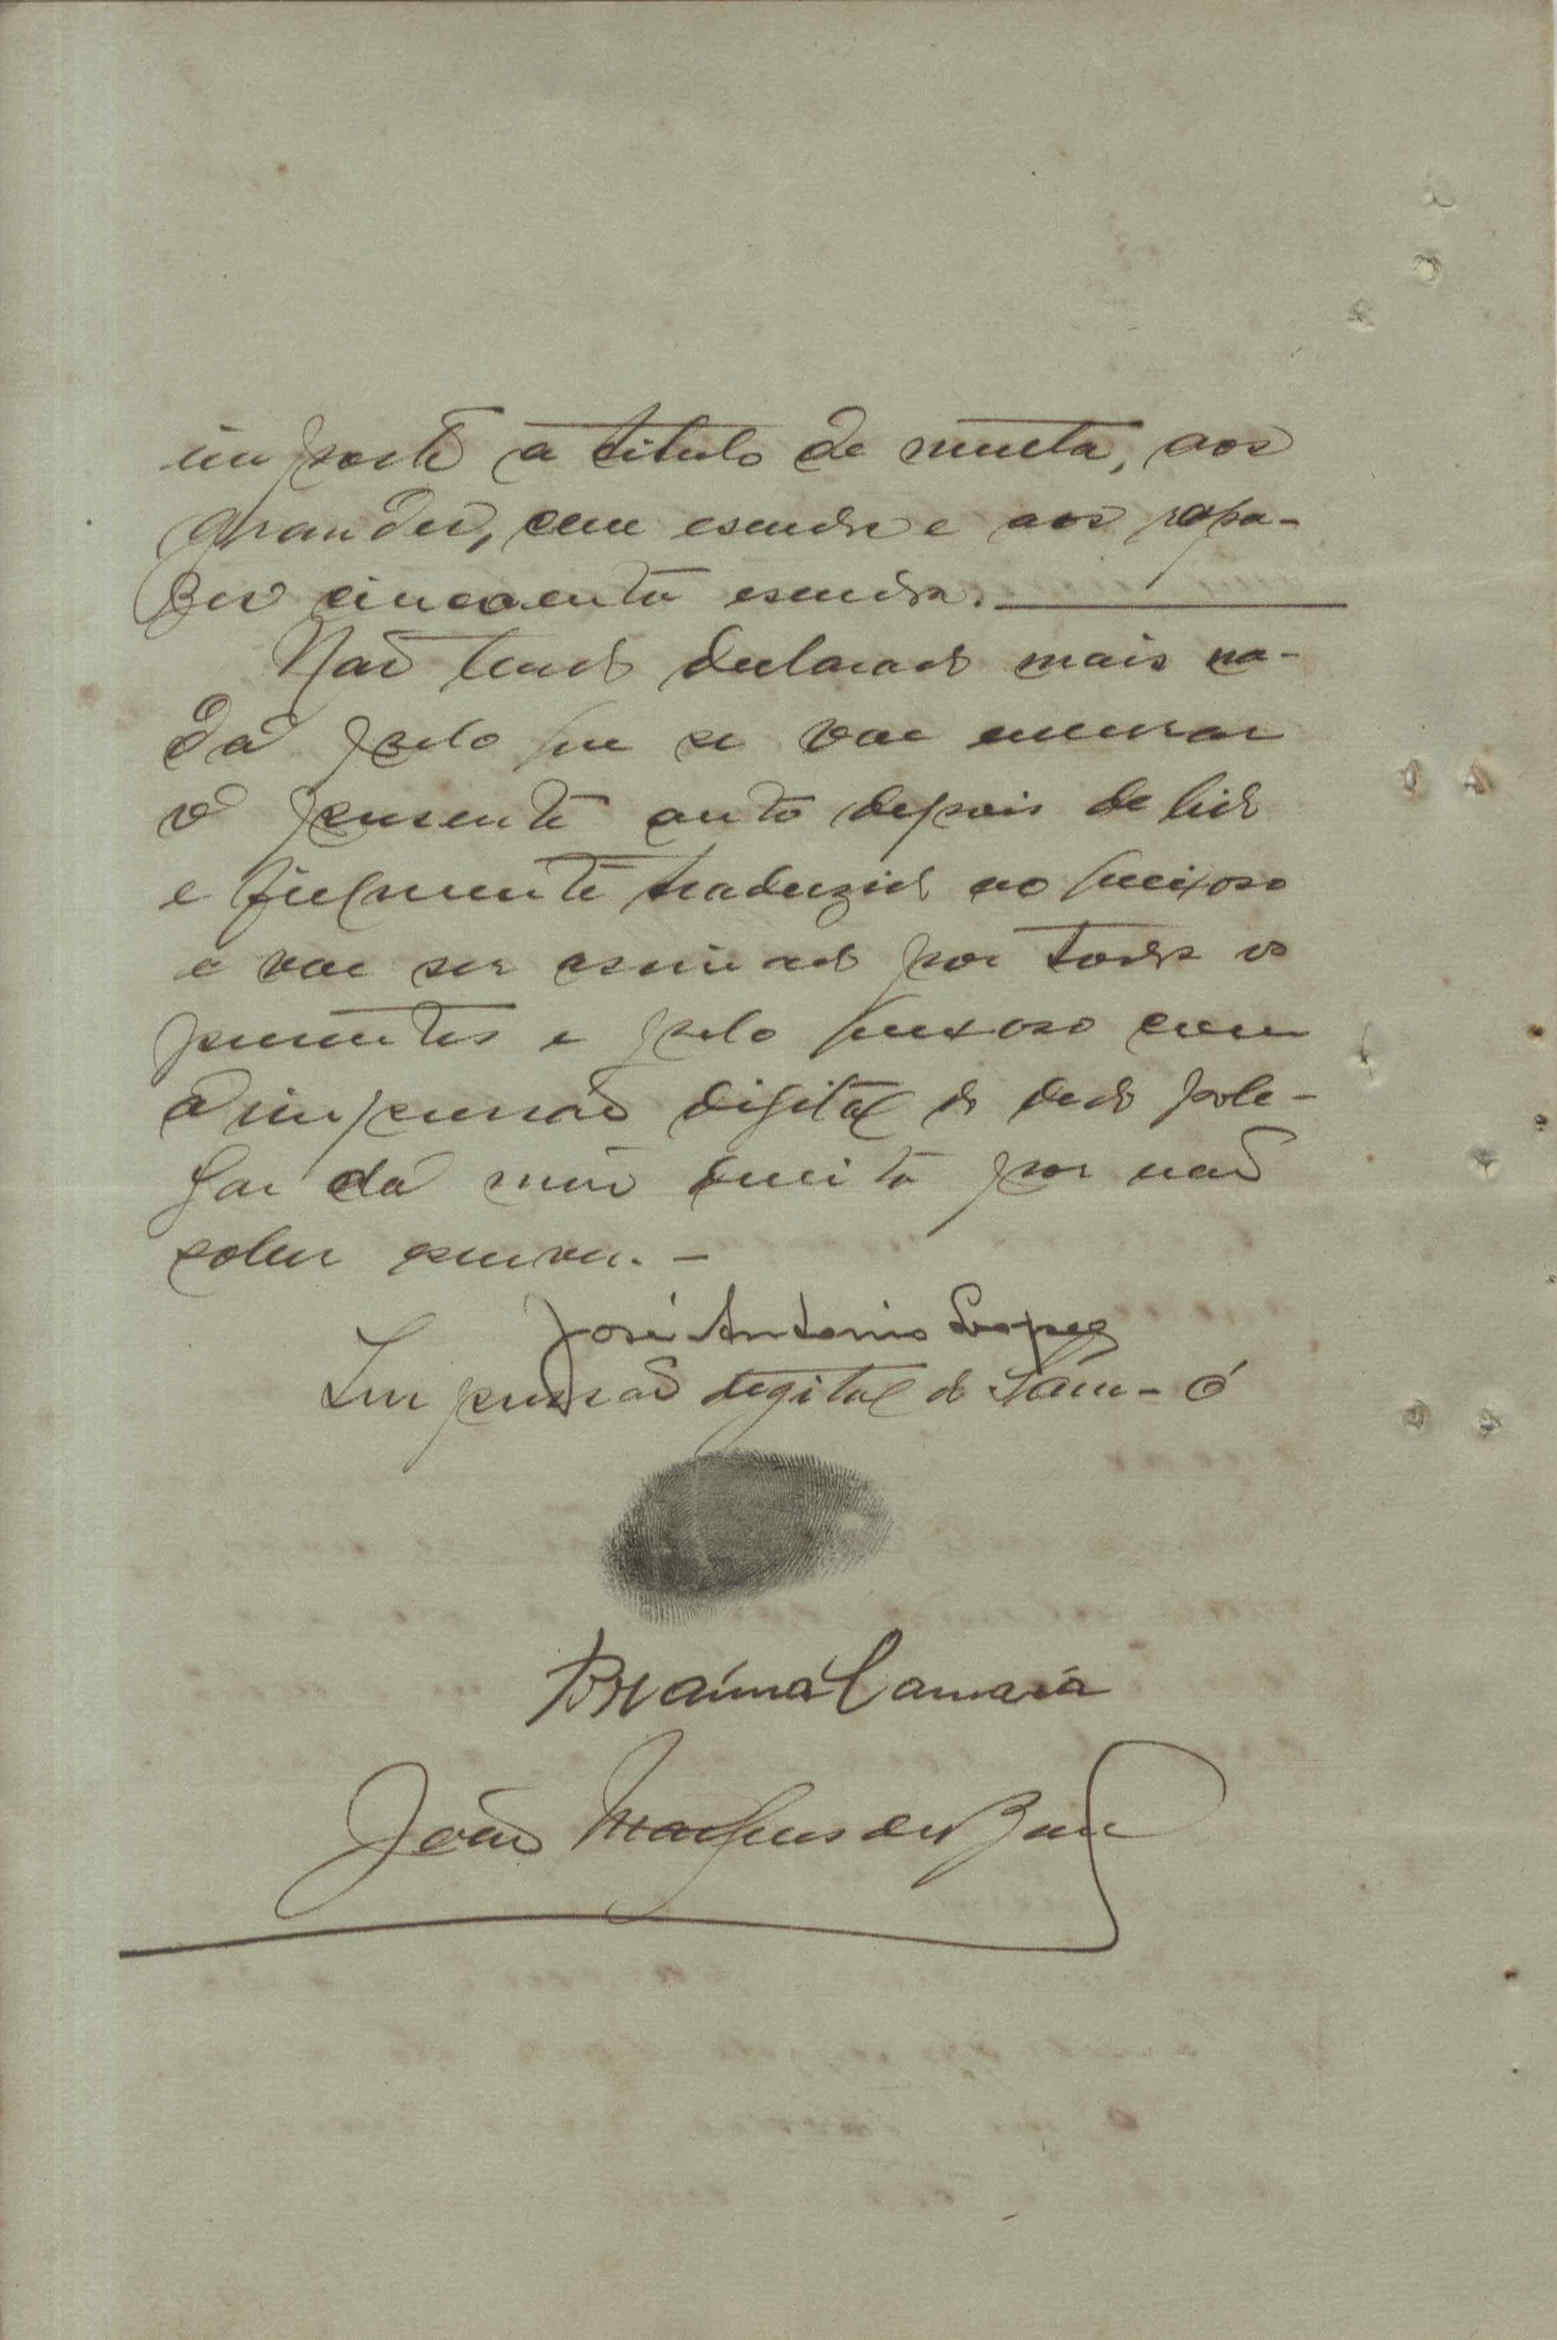 imposto a titulo de multa, aos
grandes, cem escudos e aos rapa-
zes cincoenta escudos.
Não tendo declarado mais na-
da pelo que se vae encerrar
o presente auto depois de lido
e fielmente traduzido ao queixoso
e vae ser assinado por todos os
presentes e pelo queixoso com
a impressão digital do dedo pole-
gar da mão direita por não
saber escrever. —
José Antonio Lopes
Impressão degital de Sam-ó
Braima Camará
João